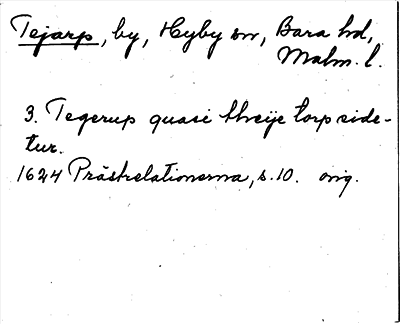 Tejarp, by, Hyby sn, Bara hd,
Malm. l.
3. Tegerup quasi threije torp vide-
tur.
1624 Prästrelationerna, s. 10. orig.